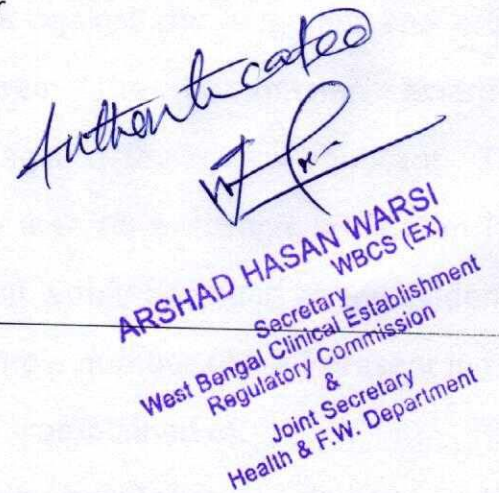 Authenticated
ARSHAD HASAN WARSI
WBCS (Ex)
Secretary
West Bengal Clinical Establishment
Regulatory Commission
&
Joint Secretary
Health & F.W. Department